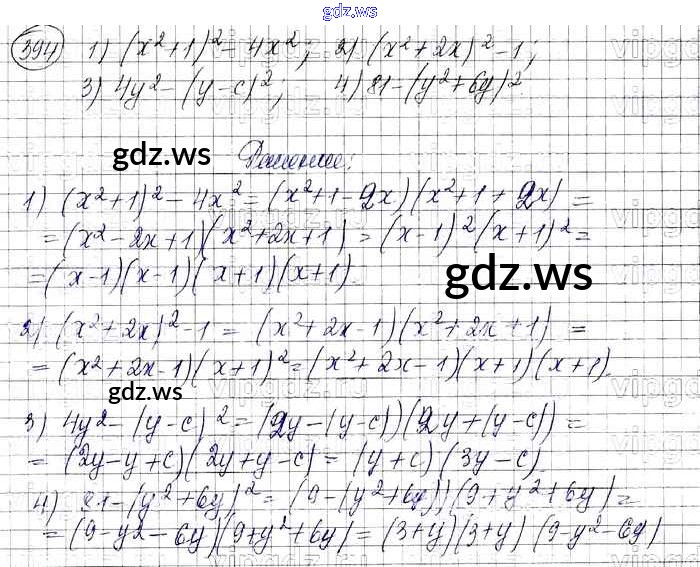 gdz.ws
394) 1) (x²+1)² - 4x²; 2) (x²+2x)² - 1;
3) 4y² - (y-c)²; 4) 81 - (y²+6y)²
gdz.ws
Решение:
1) (x²+1)² - 4x² = (x²+1-2x)(x²+1+2x) =
= (x²-2x+1)(x²+2x+1) = (x-1)²(x+1)² =
= (x-1)(x-1)(x+1)(x+1).
gdz.ws
2) (x²+2x)² - 1 = (x²+2x-1)(x²+2x+1) =
= (x²+2x-1)(x+1)² = (x²+2x-1)(x+1)(x+1).
gdz.ws
3) 4y² - (y-c)² = (2y-(y-c))(2y+(y-c)) =
= (2y-y+c)(2y+y-c) = (y+c)(3y-c).
4) 81 - (y²+6y)² = (9-(y²+6y))(9+y²+6y) =
= (9-y²-6y)(9+y²+6y) = (3+y)(3+y)(9-y²-6y)